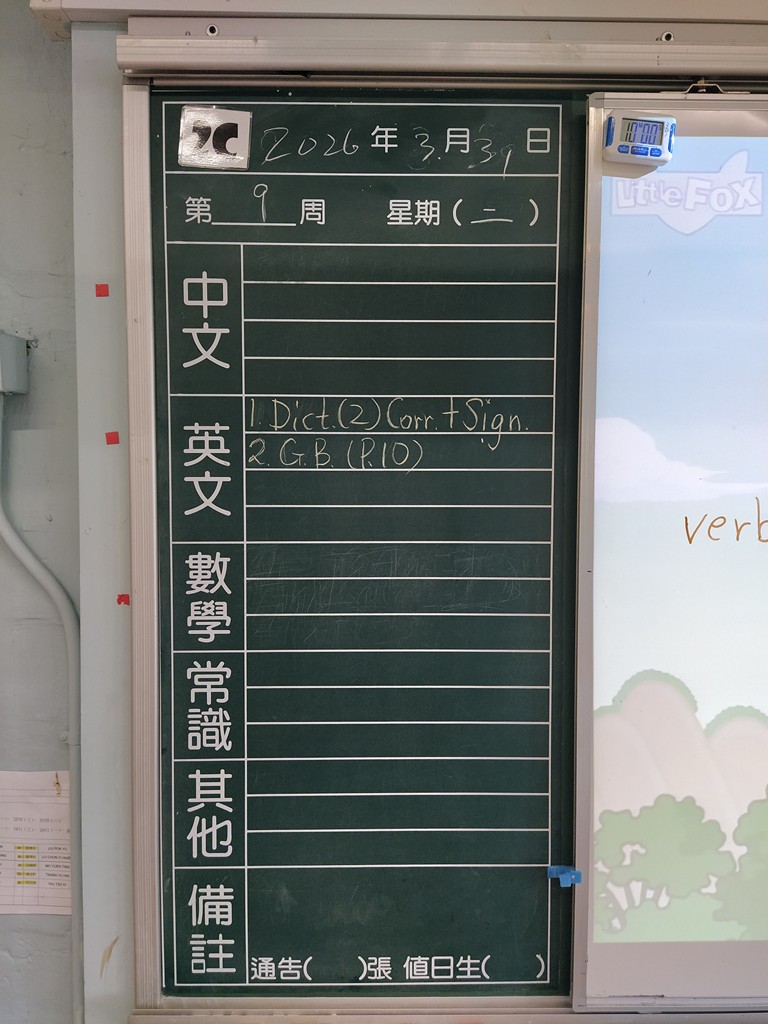 2C 2026年3月31日
第9周 星期(二)
中文
英文
1. Dict.(2) Corr. + Sign.
2. G.B. (P.10)
數學
常識
其他
備註
通告( )張 值日生( )
10:00
Little Fox
verb